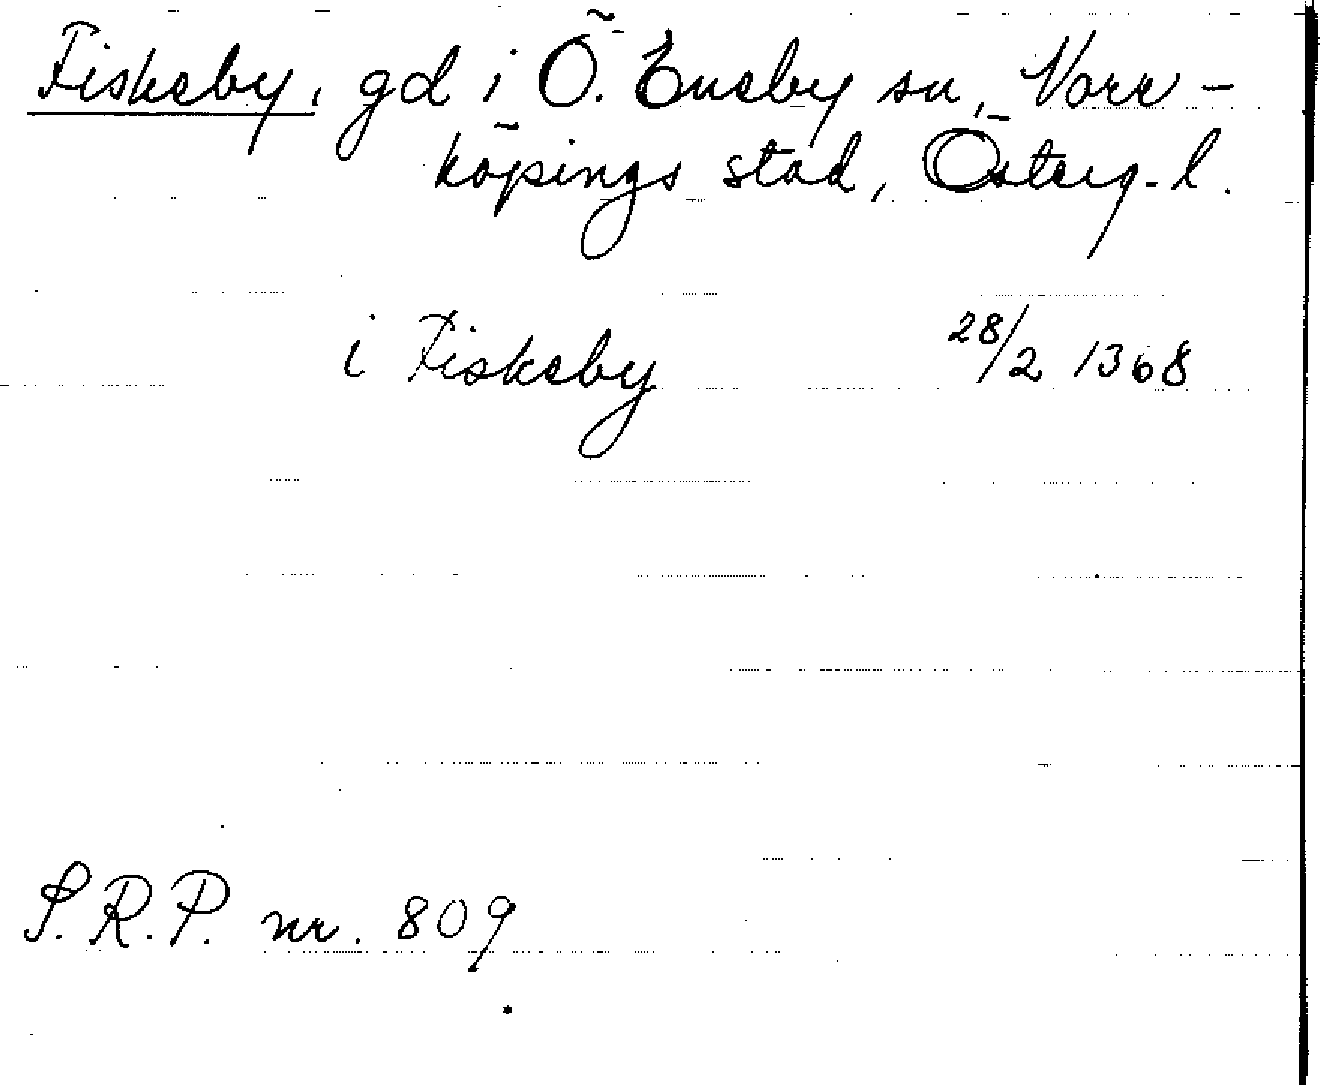 Fiskeby, gd i Ö. Eneby sn, Norr-
köpings stad, Österg. l.
i Fiskeby 28/2 1368
S.R.P. nr. 809